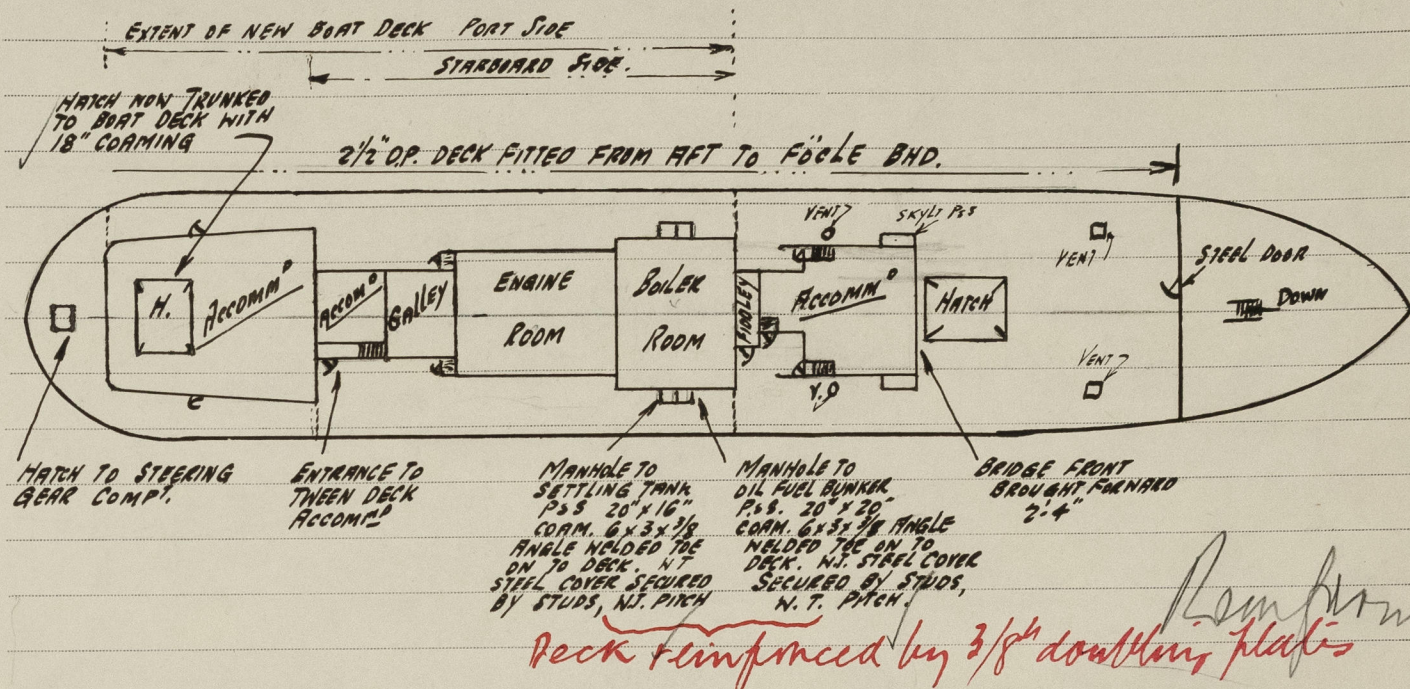 EXTENT OF NEW BOAT DECK PORT SIDE
STARBOARD SIDE.
HATCH NOW TRUNKED
TO BOAT DECK WITH
18" COAMING
2½" O.P. DECK FITTED FROM AFT TO FÖCLE BHD.
VENT
SKYLT P&S
VENT
STEEL DOOR
H.
ACCOMMᴰ
ACCOMᴰ
GALLEY
ENGINE
ROOM
BOILER
ROOM
FIDDLEY
ACCOMMᴰ
HATCH
DOWN
VENT
V.
HATCH TO STEERING
GEAR COMPT.
ENTRANCE TO
TWEEN DECK
ACCOMMᴰ
MANHOLE TO
SETTLING TANK
P&S 20" x 16"
COAM. 6 x 3 x 3/8
ANGLE WELDED TOE
ON TO DECK. WT
STEEL COVER SECURED
BY STUDS, W.T. PITCH
MANHOLE TO
OIL FUEL BUNKER
P&S. 20" x 20"
COAM. 6 x 3 x 3/8 ANGLE
WELDED TOE ON TO
DECK. W.T. STEEL COVER
SECURED BY STUDS,
W.T. PITCH.
BRIDGE FRONT
BROUGHT FORWARD
2'-4"
Deck reinforced by 3/8" doubling plates